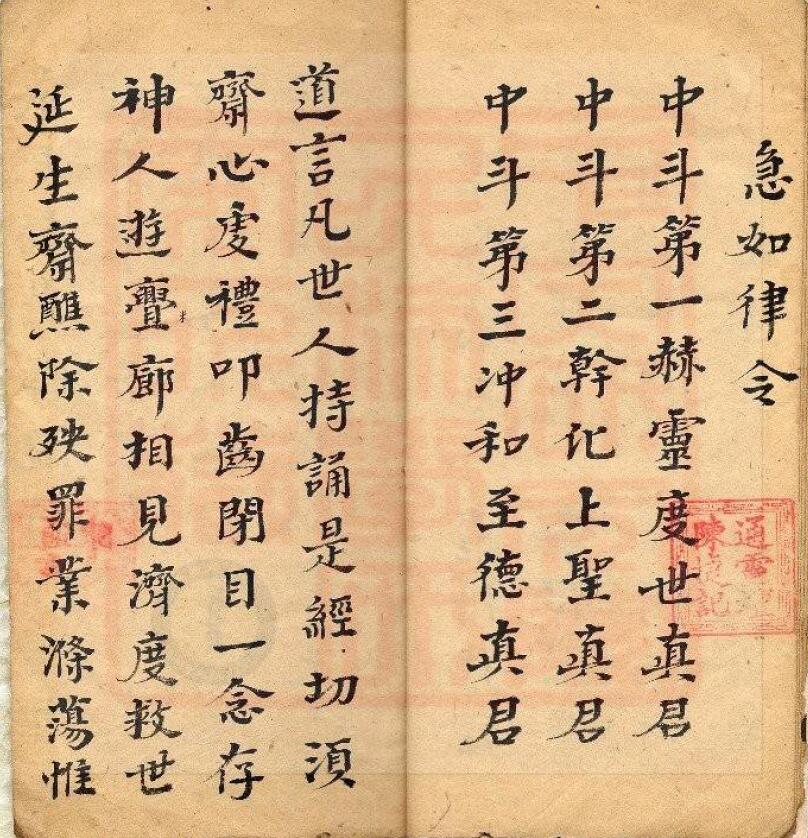 急如律令
中斗第一赫靈度世真君
中斗第二幹化上聖真君
中斗第三冲和至德真君
道言凡世人持誦是經切湏
齋心虔禮叩齒閉目一念存
神人遊廊相見濟度救世
延生齋醮除殃罪業滌蕩惟
通
陳記